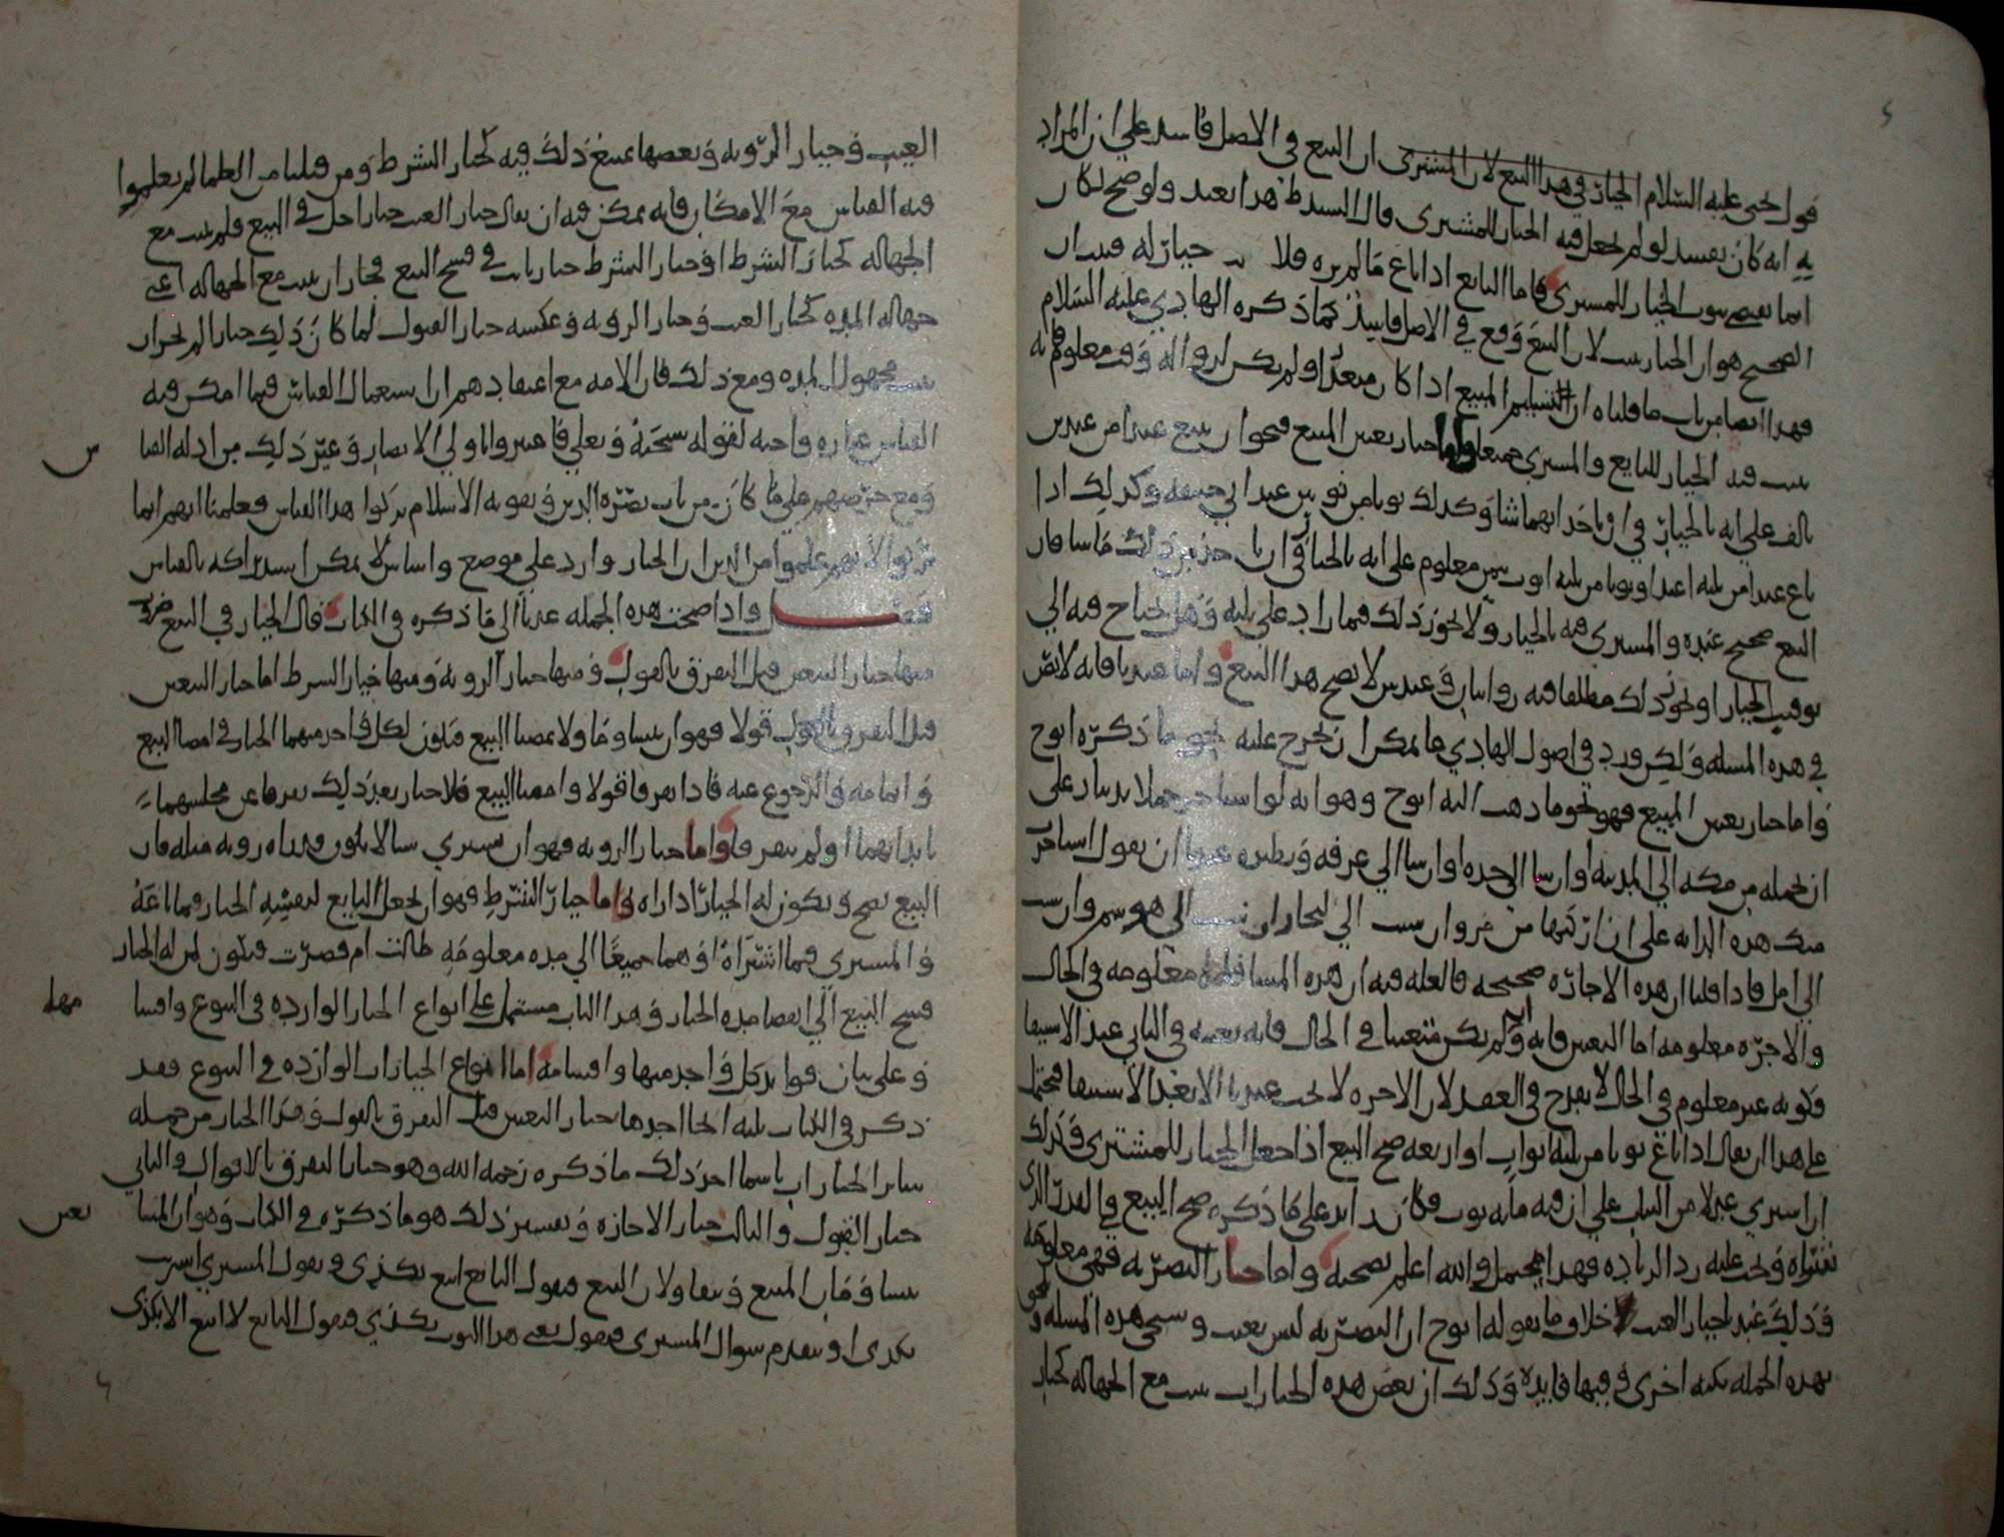 قول يحيى عليه السلام الخيار في هذا البيع لان المشترى ان البيع في الاصل فاسد على ان المراد
به انه كان يفسد لو لم يجعل فيه الخيار للمشترى قال السيد ط هذا بعيد ولو صح لكان
انما يصح بثبوت الخيار للمشترى فاما البايع اذا باع مالم يره فلا خيار له
الصحيح هو ان الخيار يثبت لان البيع وقع في الاصل فاسد كما ذكره الهادي عليه السلام
فهذا ايضا من باب ما قلناه ان التسليم المبيع اذا كان متعذرا ولم يكن لزواله وقت معلوم فانه
يثبت فيه الخيار للبايع والمشترى جميعا واما خيار تعيين المبيع فنحو ان يبيع عبدا من عبدين
بالف على انه بالخيار في ان ياخذ ايهما شاء وكذلك ثوبا من ثوبين عند ابي حنيفه وكذلك اذا
باع عبدا من ثلثه اعبد او ثوبا من ثلثه اثوب بثمن معلوم على انه بالخيار في ان ياخذ من ذلك ما شا فان
البيع صحيح عنده والمشترى فيه بالخيار ولا يجوز ذلك فيما زاد على ثلثه وهل يحتاج فيه الى
توقيت الخيار او يجوز ذلك مطلقا فيه روايتان وعند ش لا يصح هذا البيع واما عندنا فانه لا نص
في هذه المسله ولكن ورد في اصول الهادي ما يمكن ان يخرج عليه نحو ما ذكره ابوح
واما خيار تعيين المبيع فهو نحو ما ذهب اليه ابوح وهو انه لو استاجر جملا بدينار على
ان يحمله من مكه الى المدينه او ارسا الى جده او ارسا الى عرفه ونظيره عندنا ان يقول استاجرت
منك هذه الدابه على ان اركبها من مرو ان شيت الى بخارا وان شيت الى هو سم وان شيت
الى امل فاذا قلنا ان هذه الاجاره صحيحه فالعله فيه ان هذه المسافه معلومه في الحال
والاجره معلومه اما التعيين فانه وان لم يكن متعينا في الحال فانه يعينه في الثاني عند الاستيفا
فكونه غير معلوم في الحال لا يقدح في العقد لان الاجره لا تجب عندنا الا بعد الاستيفا فيحتمل
على هذا ان يقال اذا باع ثوبا من ثلثه اثواب او اربعه صح البيع اذا جعل الخيار للمشترى وكذلك
ان اشترى عدلا من الثياب على ان فيه مايه ثوب فكان زايدا على ما ذكره صح البيع في القدر الذي
اشتراه ويجب عليه رد الزياده فهذا محتمل والله اعلم بصحته واما خيار التصريه فهي معلومه
وذلك عند خيار العيب خلاف ما يقوله ابوح ان التصريه ليس بعيب وستجي هذه المسله ونحو
بهذه الجمله نكته اخرى في فيها فايده وذلك ان بعض هذه الخيارات يثبت مع الجهاله كخيار
العيب وخيار الرويه وبعضها يمنع ذلك فيه كخيار الشرط ومن قبلنا من العلما لم يعلموا
فيه القياس مع الامكان فانه يمكن فيه ان يقال خيار العيب خيار احل في البيع فلم يثبت مع
الجهاله كخيار الشرط او خيار الشرط خيار ثابت في فسخ البيع فجاز ان يثبت مع الجهاله اعني
جهاله المده كخيار العيب وخيار الرويه وعكسه خيار القبول لما كان ذلك خيارا لم يجز ان
يثبت مجهول المده ومع ذلك فان الامه مع اعتقادهم ان استعمال القياس فيما امكن فيه
القياس عباره واجبه لقوله سبحنه وتعلي فاعتبروا يا اولي الابصار وغير ذلك من ادله القيا
س
ومع حرصهم على ما كان من باب نصره الدين وتقويه الاسلام تركوا هذا القياس فعلمنا انهم انما
تركوا لانهم علموا من الدين ان الخيار وارد على موضع واساس لا يمكن استدراكه بالقياس
فصل واذا صحت هذه الجمله عدنا الى ما ذكره في الكتاب قال الخيار في البيع ضرب
منها خيار المتبايعين قبل التفرق بالقول ومنها خيار الرويه ومنها خيار الشرط اما خيار البيعين
قبل التفرق بالقول قولا فهو ان يتساوما ولا يمضيا البيع فيكون لكل واحد منهما الخيار في امضا البيع
واتمامه والرجوع عنه فاذا تفرقا قولا وامضيا البيع فلا خيار بعد ذلك تفرقا عن مجلسهما
بابدانهما او لم يتفرقا واما خيار الرويه فهو ان يشتري شيا لا يكون قد راه رويه مثله فان
البيع يصح ويكون له الخيار اذا راه واما خيار الشرط فهو ان يجعل البايع لنفسه الخيار فيما باعه
والمشتري فيما اشتراه او هما جميعا الى مده معلومه طالت ام قصرت فيكون لمن له الخيار
فسخ البيع الى انقضا مده الخيار وهذا الباب مشتمل على انواع الخيار الوارده في البيوع واقسا
مها
وعلى بيان فوايد كل واحد منها واقسامه اما انواع الخيارات الوارده في البيوع فقد
ذكر في الكتاب ثلثه انحا احدها خيار البيعين قبل التفرق بالقول وهذا الخيار من جمله
ساير الخيارات باسما اخر ذلك ما ذكره رحمه الله وهو خيار التفرق بالاقوال والثاني
خيار القبول والثالث خيار الاجازه وتفسير ذلك هو ما ذكره في الكتاب وهو ان المتبا
يعين
يتساومان المبيع ويتقاولان البيع فيقول البايع ابيع بكذى ويقول المشترى اشتريت
بكذى او يتقدم سوال المشترى فيقول بعني هذا الثوب بكذي فيقول البايع لا ابيع الا بكذى